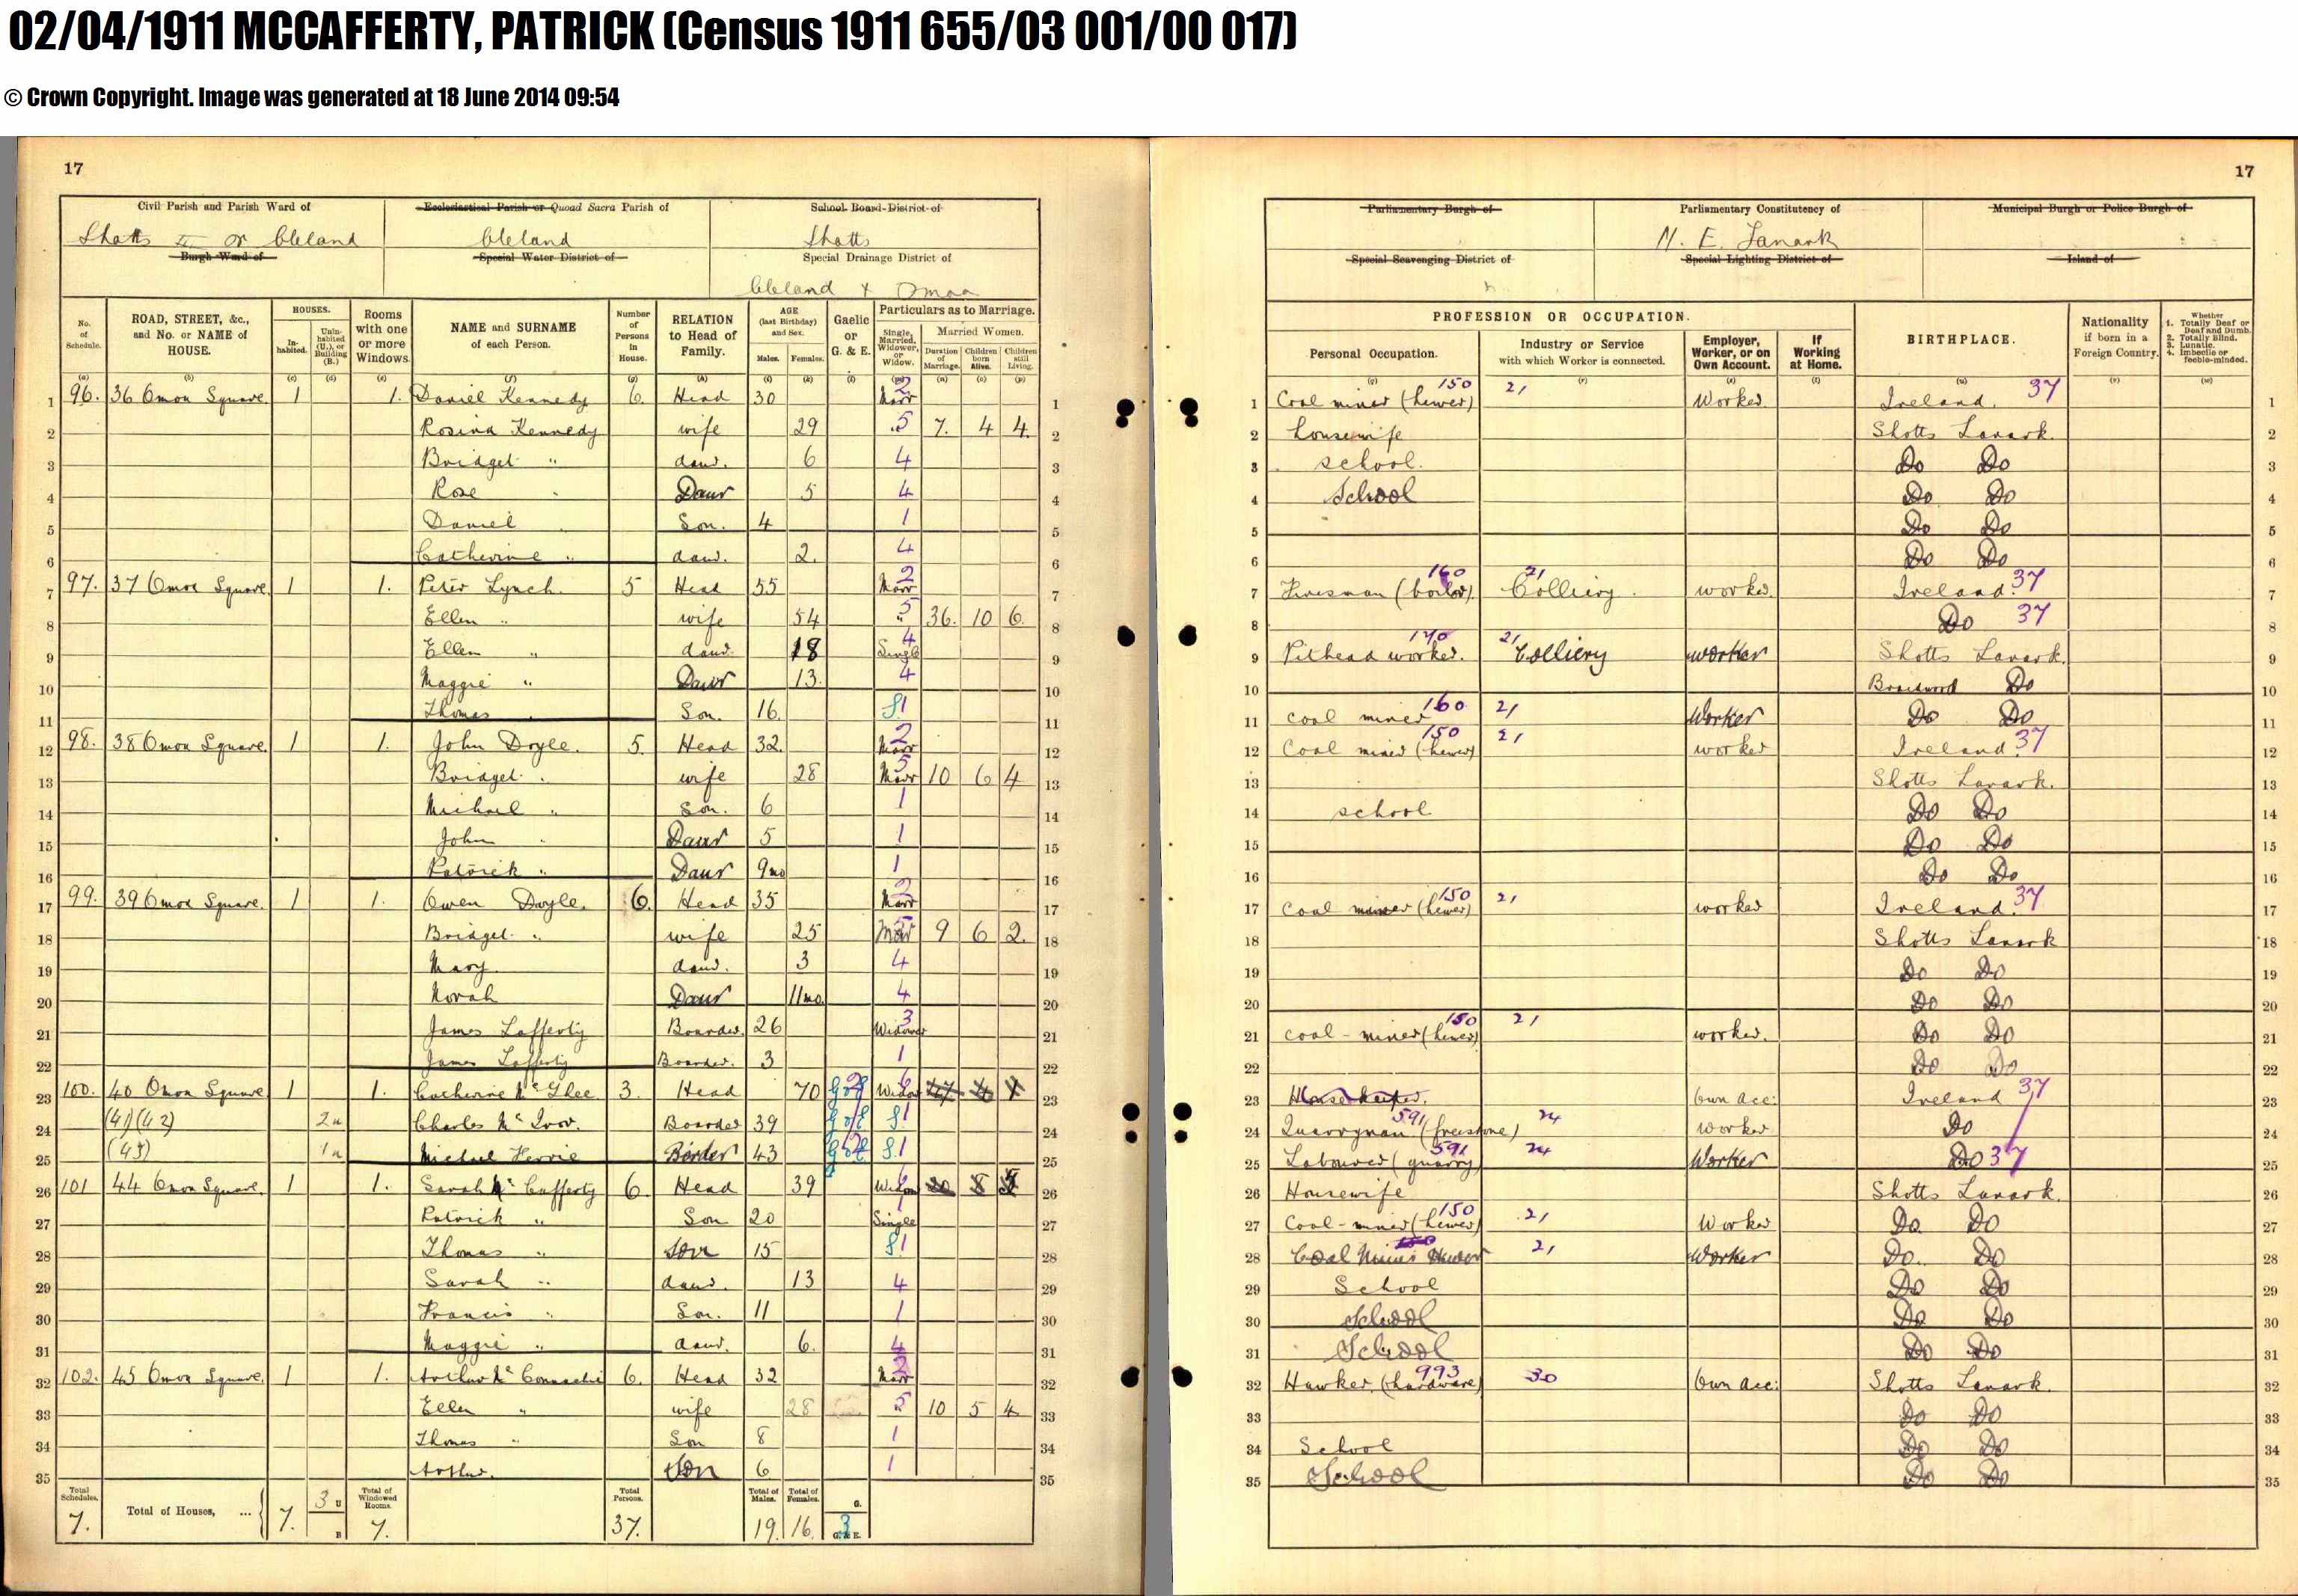 02/04/1911 MCCAFFERTY, PATRICK (Census 1911 655/03 001/00 017)
© Crown Copyright. Image was generated at 18 June 2014 09:54
17
Civil Parish and Parish Ward of
Shotts II or Cleland
Burgh Ward of
Ecclesiastical Parish or Quoad Sacra Parish of
Cleland
Special Water District of
School Board District of
Shotts
Special Drainage District of
Cleland & Omoa
No. of Schedule. ROAD, STREET, &c., and No. or NAME of HOUSE. HOUSES. Inhabited. Uninhabited (U.), or Building (B.) Rooms with one or more Windows. NAME and SURNAME of each Person. Number of Persons in House. RELATION to Head of Family. AGE (last Birthday) and Sex. Males. Females. Gaelic or G. & E. Particulars as to Marriage. Single, Married, Widower, or Widow. Married Women. Duration of Marriage. Children born Alive. Children still Living.
(a) (b) (c) (d) (e) (f) (g) (h) (i) (k) (l) (m) (n) (o) (p)
1 96. 36 Omoa Square. 1 1. Daniel Kennedy 6. Head 30 Marr 2 1
2 Rosina Kennedy wife 29 5 7. 4 4. 2
3 Bridget " daur. 6 4 3
4 Rose " Daur 5 4 4
5 Daniel Son. 4 1 5
6 Catherine " daur. 2. 4 6
7 97. 37 Omoa Square. 1 1. Peter Lynch. 5 Head 55 Marr 2 7
8 Ellen " wife 54 " 5 36. 10 6. 8
9 Ellen " daur. 18 Single 4 9
10 Maggie " Daur 13. 4 10
11 Thomas Son. 16. S1 11
12 98. 38 Omoa Square. 1 1. John Doyle. 5. Head 32. Marr 2 12
13 Bridget " wife 28 Marr 5 10 6 4 13
14 Michael " Son. 6 1 14
15 John " Daur 5 1 15
16 Patrick " Daur 9mo 1 16
17 99. 39 Omoa Square. 1 1. Owen Doyle. 6. Head 35 Marr 2 17
18 Bridget " wife 25 Marr 5 9 6 2. 18
19 Mary daur. 3 4 19
20 Norah Daur 11mo. 4 20
21 James Lafferty Boarder. 26 Widower 3 21
22 James Lafferty Boarder. 3 1 22
23 100. 40 Omoa Square 1 1. Catherine McGhee 3. Head 70 G&E Widow 47 4 23
24 (41)(42) 2u Charles McIvor. Boarder 39 G&E S1 24
25 (43) 1u Michael Border 43 G&E S1 25
26 101 44 Omoa Square. 1 1. Sarah McCafferty 6. Head 39 Widow 20 8 5 26
27 Patrick " Son 20 Single 1 27
28 Thomas " Son 15 S1 28
29 Sarah " daur. 13 4 29
30 Francis " Son. 11 1 30
31 Maggie " daur. 6. 4 31
32 102. 45 Omoa Square. 1 1. Arthur 6. Head 32 Marr 2 32
33 Ellen " wife 28 5 10 5 4 33
34 Thomas " Son 8 1 34
35 Arthur. Son 6 1 35
Total Schedules. 7. Total of Houses, ... 7. 3 U B Total of Windowed Rooms. 7. Total Persons. 37. Total of Males. 19. Total of Females. 16. G. 3 G. & E.
17
Parliamentary Burgh of
Special Scavenging District of
Parliamentary Constituency of
N. E. Lanark
Special Lighting District of
Municipal Burgh or Police Burgh of
Island of
PROFESSION OR OCCUPATION. Personal Occupation. Industry or Service with which Worker is connected. Employer, Worker, or on Own Account. If Working at Home. BIRTHPLACE. Nationality if born in a Foreign Country. Whether 1. Totally Deaf or Deaf and Dumb. 2. Totally Blind. 3. Lunatic. 4. Imbecile or feeble-minded.
(q) (r) (s) (t) (u) (v) (w)
1 Coal miner (hewer) 150 21 Worker. Ireland. 37 1
2 housewife Shotts Lanark. 2
3 school. Do Do 3
4 School Do Do 4
5 Do Do 5
6 Do Do 6
7 Fireman (boiler). 160 21 Colliery. worker. Ireland. 37 7
8 Do 37 8
9 Pithead worker. 170 21 Colliery worker Shotts Lanark. 9
10 Braidwood Do 10
11 coal miner 160 21 Worker Do Do 11
12 Coal miner (hewer) 150 21 worker Ireland 37 12
13 Shotts Lanark. 13
14 school Do Do 14
15 Do Do 15
16 Do Do 16
17 Coal miner (hewer) 150 21 worker Ireland. 37 17
18 Shotts Lanark 18
19 Do Do 19
20 Do Do 20
21 coal-miner (hewer) 150 21 worker. Do Do 21
22 Do Do 22
23 Housekeeper. Own acc: Ireland 37 23
24 Quarryman (freestone) 591 24 worker Do 24
25 Labourer (quarry) 591 24 Worker Do 37 25
26 Housewife Shotts Lanark. 26
27 Coal-miner (hewer) 150 21 Worker Do. Do 27
28 Coal Miner Hewer 150 21 Worker Do. Do 28
29 School Do Do 29
30 School Do Do 30
31 School Do Do 31
32 Hawker. (hardware) 993 30 Own acc: Shotts Lanark. 32
33 Do Do 33
34 School Do Do 34
35 School Do Do 35